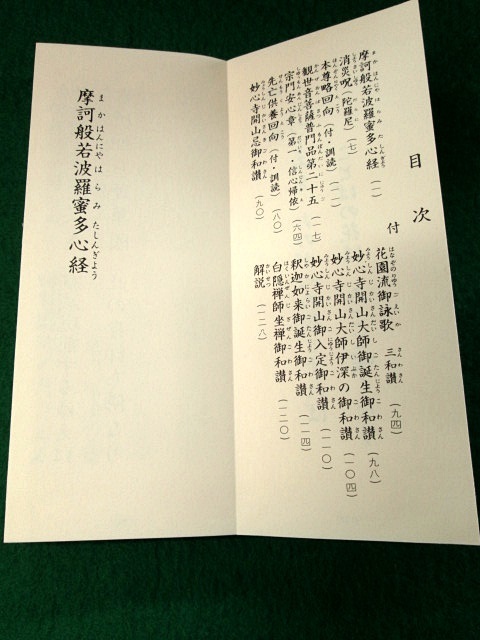 目次
摩訶般若波羅蜜多心経 (一)
消災呪(陀羅尼) (七)
本尊略回向(付・訓読)
観世音菩薩普門品第二十五 (一七)
宗門安心章(第一・信心帰依) (六四)
先亡供養回向(付・訓読) (八〇)
妙心寺開山忌御和讃 (九〇)
付
花園流御詠歌 三和讃 (九四)
妙心寺開山大師御誕生御和讃 (九八)
妙心寺開山大師伊深の御和讃 (一〇四)
妙心寺開山御入定御和讃 (一一〇)
釈迦如来御誕生御和讃 (一一四)
白隠禅師坐禅御和讃 (一二〇)
解説 (一二八)
摩訶般若波羅蜜多心経
ま か はんにや は ら み た しんぎよう